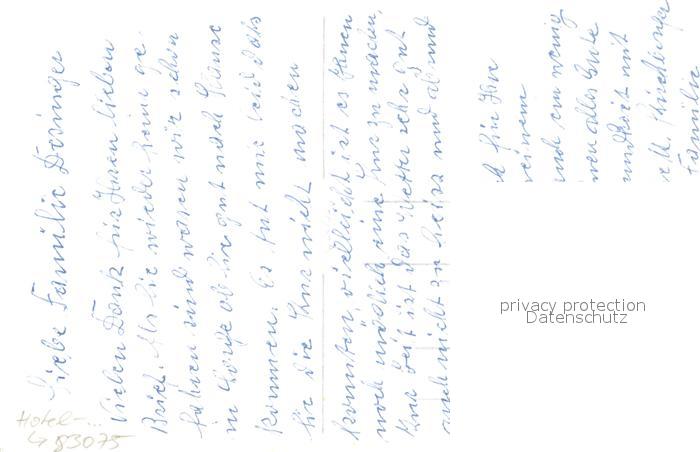 Liebe Familie Deringer
Vielen Dank für Ihren lieben
Brief. Als Sie wieder heim ge
fahren sind waren wir schon
in Sorge ob Sie gut nach Hause
kommen. Es tut mir leid dass
Sie die Kur nicht machen
konnten, vielleicht ist es Ihnen
noch möglich eine Kur zu machen,
Zur Zeit ist das Wetter sehr gut
auch nicht zu heiss und ab und
für Ihre
und ein wenig
nen alles Gute
undheit mit
Familie
privacy protection
Datenschutz
Hotel-...
↳ 83075